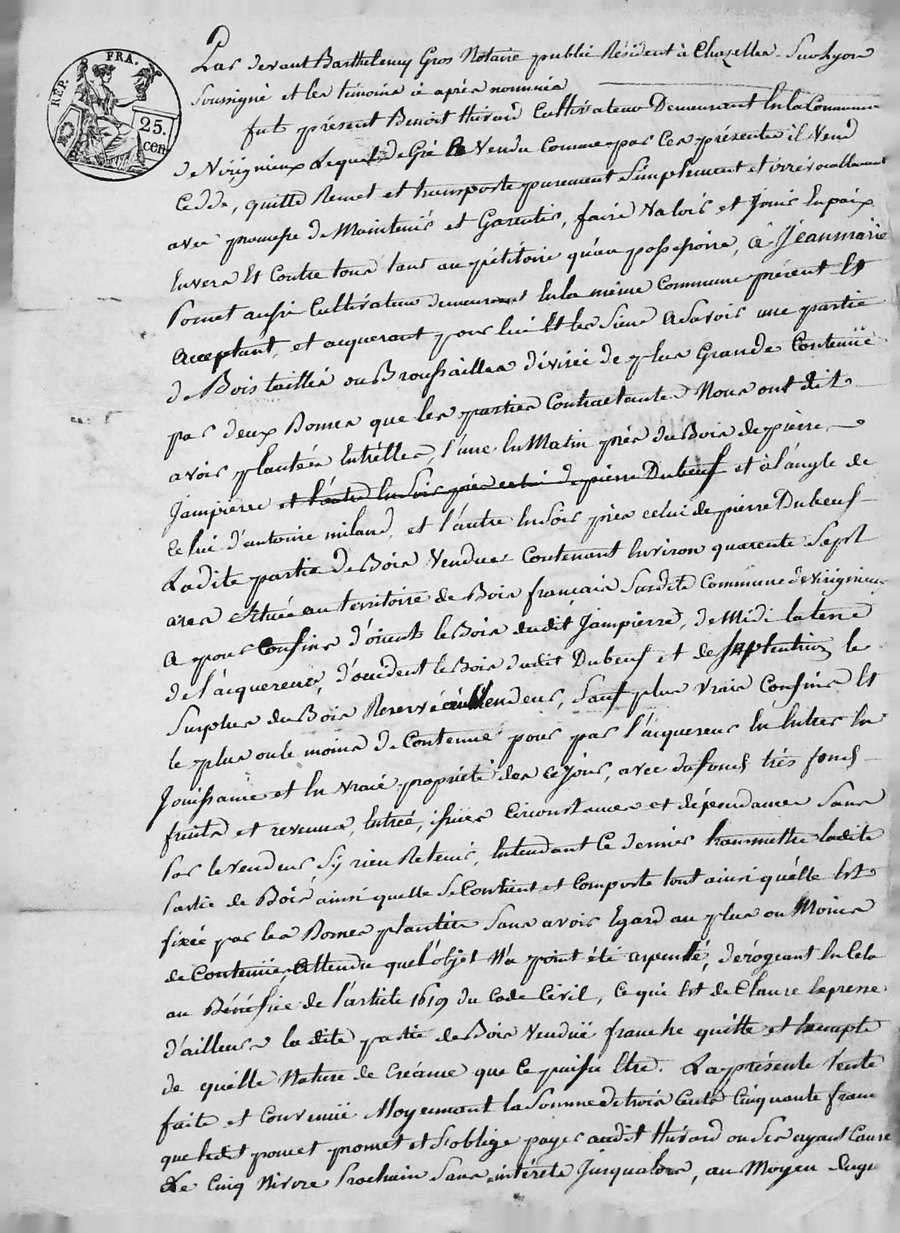 RÉP. FRA.
25.
cen
Par devant Barthelemy Gros Notaire public Résident à Chazelles Sur Lyon
Soussigné et les témoins ci après nommés
fut présent Benoit Huvard Cultivateur Demeurant En la Commune
de Virignieux Lequel de Gré A Vendu comme par Ces présentes il Vend
Cedde, quitte Remet et transporte purement Simplement et irrévocablement
avec promesse de Maintenir et Garentir, faire Valoir et Jouir En paix
Envers Et Contre tous tant au pétitoire qu'au possessoire, à Jeanmarie
Poncet aussi Cultivateur demeurant En la même Commune présent Et
acceptant, et acquerant pour lui Et les Siens Asavoir une partie
de Bois taillis ou Broussailles divisée de plus Grande Contenüe
par deux Bornes que les parties Contractantes Nous ont dit
avoir plantées Entr'elles, l'une En Matin près du Bois de pierre
Jampierre et l'autre En Soir près celui de pierre Dubeuf et à l'angle de
Celui d'antoine miland, et l'autre En Soir près celui de pierre Dubeuf
Ladite partie de Bois Vendue Contenant Environ quarente Sept
ares Située au territoire de Bois français Susdite Commune de Virignieux
A pour Confins d'orient le Bois dudit Jampierre, de Midi la terre
de l'acquereur, d'occident le Bois dudit Dubeuf et de Septentrion le
Surplus du Bois Reservé au Vendeur, Sauf plus Vrais Confins Et
le plus ou le moins de Contenue pour par l'acquereur En Entrer En
Jouissance et En Vraie propriété dès ce Jour, avec Ses fonds très fonds
fruits et revenus, Entrée, issues Circonstances et dépendances Sans
Par le Vendeur S'y rien Retenir, Entendant Ce dernier transmettre ladite
Partie de Bois ainsi quelle Se Contient et Comporte tout ainsi qu'elle Est
fixée par les Bornes plantées Sans avoir Egard au plus ou Moins
de Contenüe, Attendu que l'objet N'a point été arpenté, dérogeant En Cela
au Bénéfice de l'article 1619 du Code Civil, Ce qui Est de Clause Expresse
d'ailleurs la dite partie de Bois Vendüe franche quitte et Exempte
de quelle Nature de Créance que Ce puisse Etre. La présente Vente
faite et Convenüe Moyennant la Somme de trois Cents Cinquante francs
que ledit poncet promet et S'oblige payer audit Huvard ou Ses ayant Cause
Le Cinq Nivose Prochain Sans intérêts Jusqualors, au Moyen duqu